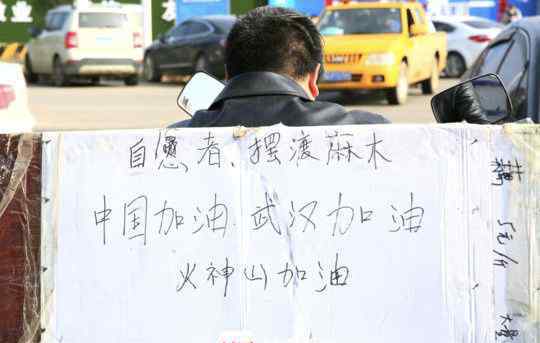 自愿者、摆渡麻木
中国加油.武汉加油
火神山加油
5元/斤